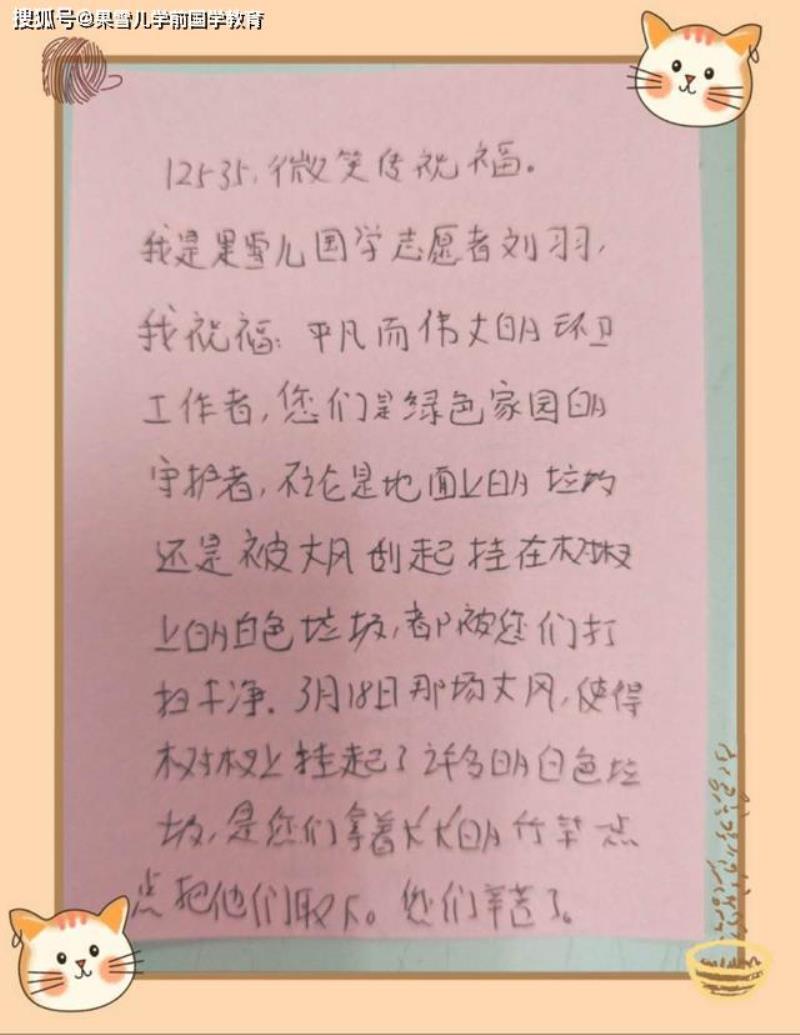 搜狐号@果雪儿学前国学教育
12535,微笑传祝福。
我是果雪儿国学志愿者刘羽,
我祝福:平凡而伟大的环卫
工作者,您们是绿色家园的
守护者,不论是地面上的垃圾
还是被大风刮起挂在树杈
上的白色垃圾,都被您们打
扫干净.3月18日那场大风,使得
树杈上挂起了许多的白色垃
圾,是您们拿着长长的竹竿一点
点把他们取下。您们辛苦了。